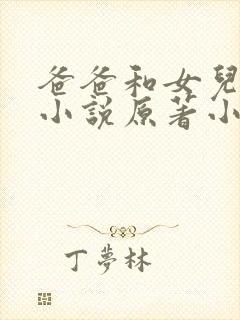 爸爸和女兒
小說原著小
丁夢林